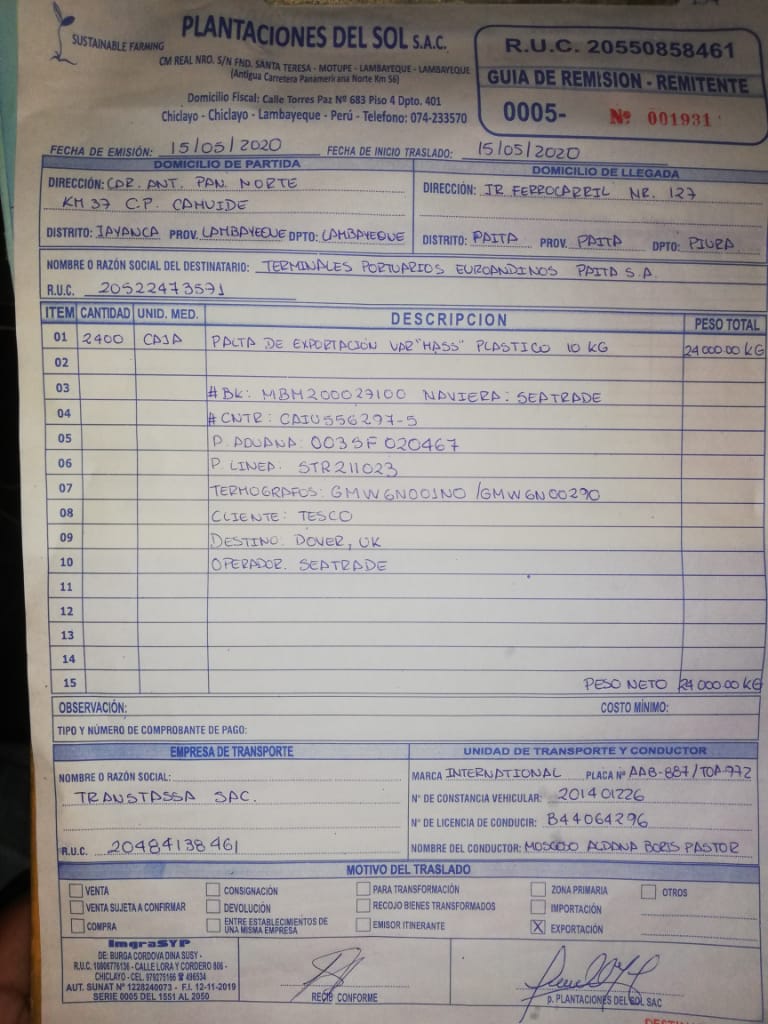 SUSTAINABLE FARMING
PLANTACIONES DEL SOL S.A.C.
CM REAL NRO. S/N FND. SANTA TERESA - MOTUPE - LAMBAYEQUE - LAMBAYEQUE
(Antigua Carretera Panamericana Norte Km 56)
Domicilio Fiscal: Calle Torres Paz Nº 683 Piso 4 Dpto. 401
Chiclayo - Chiclayo - Lambayeque - Perú - Telefono: 074-233570
R.U.C. 20550858461
GUIA DE REMISION - REMITENTE
0005- Nº 001931
FECHA DE EMISIÓN: 15/05/2020 FECHA DE INICIO TRASLADO: 15/05/2020
DOMICILIO DE PARTIDA
DIRECCIÓN: CAR. ANT. PAN. NORTE
KM 37 C.P. CAHUIDE
DISTRITO: JAYANCA PROV. LAMBAYEQUE DPTO: LAMBAYEQUE
DOMICILIO DE LLEGADA
DIRECCIÓN: JR FERROCARRIL NR. 127
DISTRITO: PAITA PROV. PAITA DPTO: PIURA
NOMBRE O RAZÓN SOCIAL DEL DESTINATARIO: TERMINALES PORTUARIOS EUROANDINOS PAITA S.A.
R.U.C. 20522473571
ITEM CANTIDAD UNID. MED. DESCRIPCION PESO TOTAL
01 2400 CAJA PALTA DE EXPORTACIÓN VAR "HASS" PLASTICO 10 KG 24000.00 KG
02
03 #BK: MBM200027100 NAVIERA: SEATRADE
04 #CNTR: CAIU556297-5
05 P. ADUANA: 003SF020467
06 P. LINEA: STR211023
07 TERMOGRAFOS: GMW6N001N0 / GMW6N00290
08 CLIENTE: TESCO
09 DESTINO: DOVER, UK
10 OPERADOR: SEATRADE
11
12
13
14
15 PESO NETO 24000.00 KG
OBSERVACIÓN: COSTO MÍNIMO:
TIPO Y NÚMERO DE COMPROBANTE DE PAGO:
EMPRESA DE TRANSPORTE
NOMBRE O RAZÓN SOCIAL:
TRANSTASSA SAC.
R.U.C. 20484138461
UNIDAD DE TRANSPORTE Y CONDUCTOR
MARCA INTERNATIONAL PLACA Nº AAB-887/TOA-972
N° DE CONSTANCIA VEHICULAR: 201401226
N° DE LICENCIA DE CONDUCIR: B44064296
NOMBRE DEL CONDUCTOR: MOSCOSO ALDANA BORIS PASTOR
MOTIVO DEL TRASLADO
VENTA CONSIGNACIÓN PARA TRANSFORMACIÓN ZONA PRIMARIA OTROS
VENTA SUJETA A CONFIRMAR DEVOLUCIÓN RECOJO BIENES TRANSFORMADOS IMPORTACIÓN
COMPRA ENTRE ESTABLECIMIENTOS DE UNA MISMA EMPRESA EMISOR ITINERANTE X EXPORTACIÓN
ImgraSYP
DE: BURGA CORDOVA DINA SUSY -
R.U.C. 10806776136 - CALLE LORA Y CORDERO 806 -
CHICLAYO - CEL. 979275166 ☎ 496534
AUT. SUNAT Nº 1228240073 - F.I. 12-11-2019
SERIE 0005 DEL 1551 AL 2050
RECIBÍ CONFORME
p. PLANTACIONES DEL SOL SAC